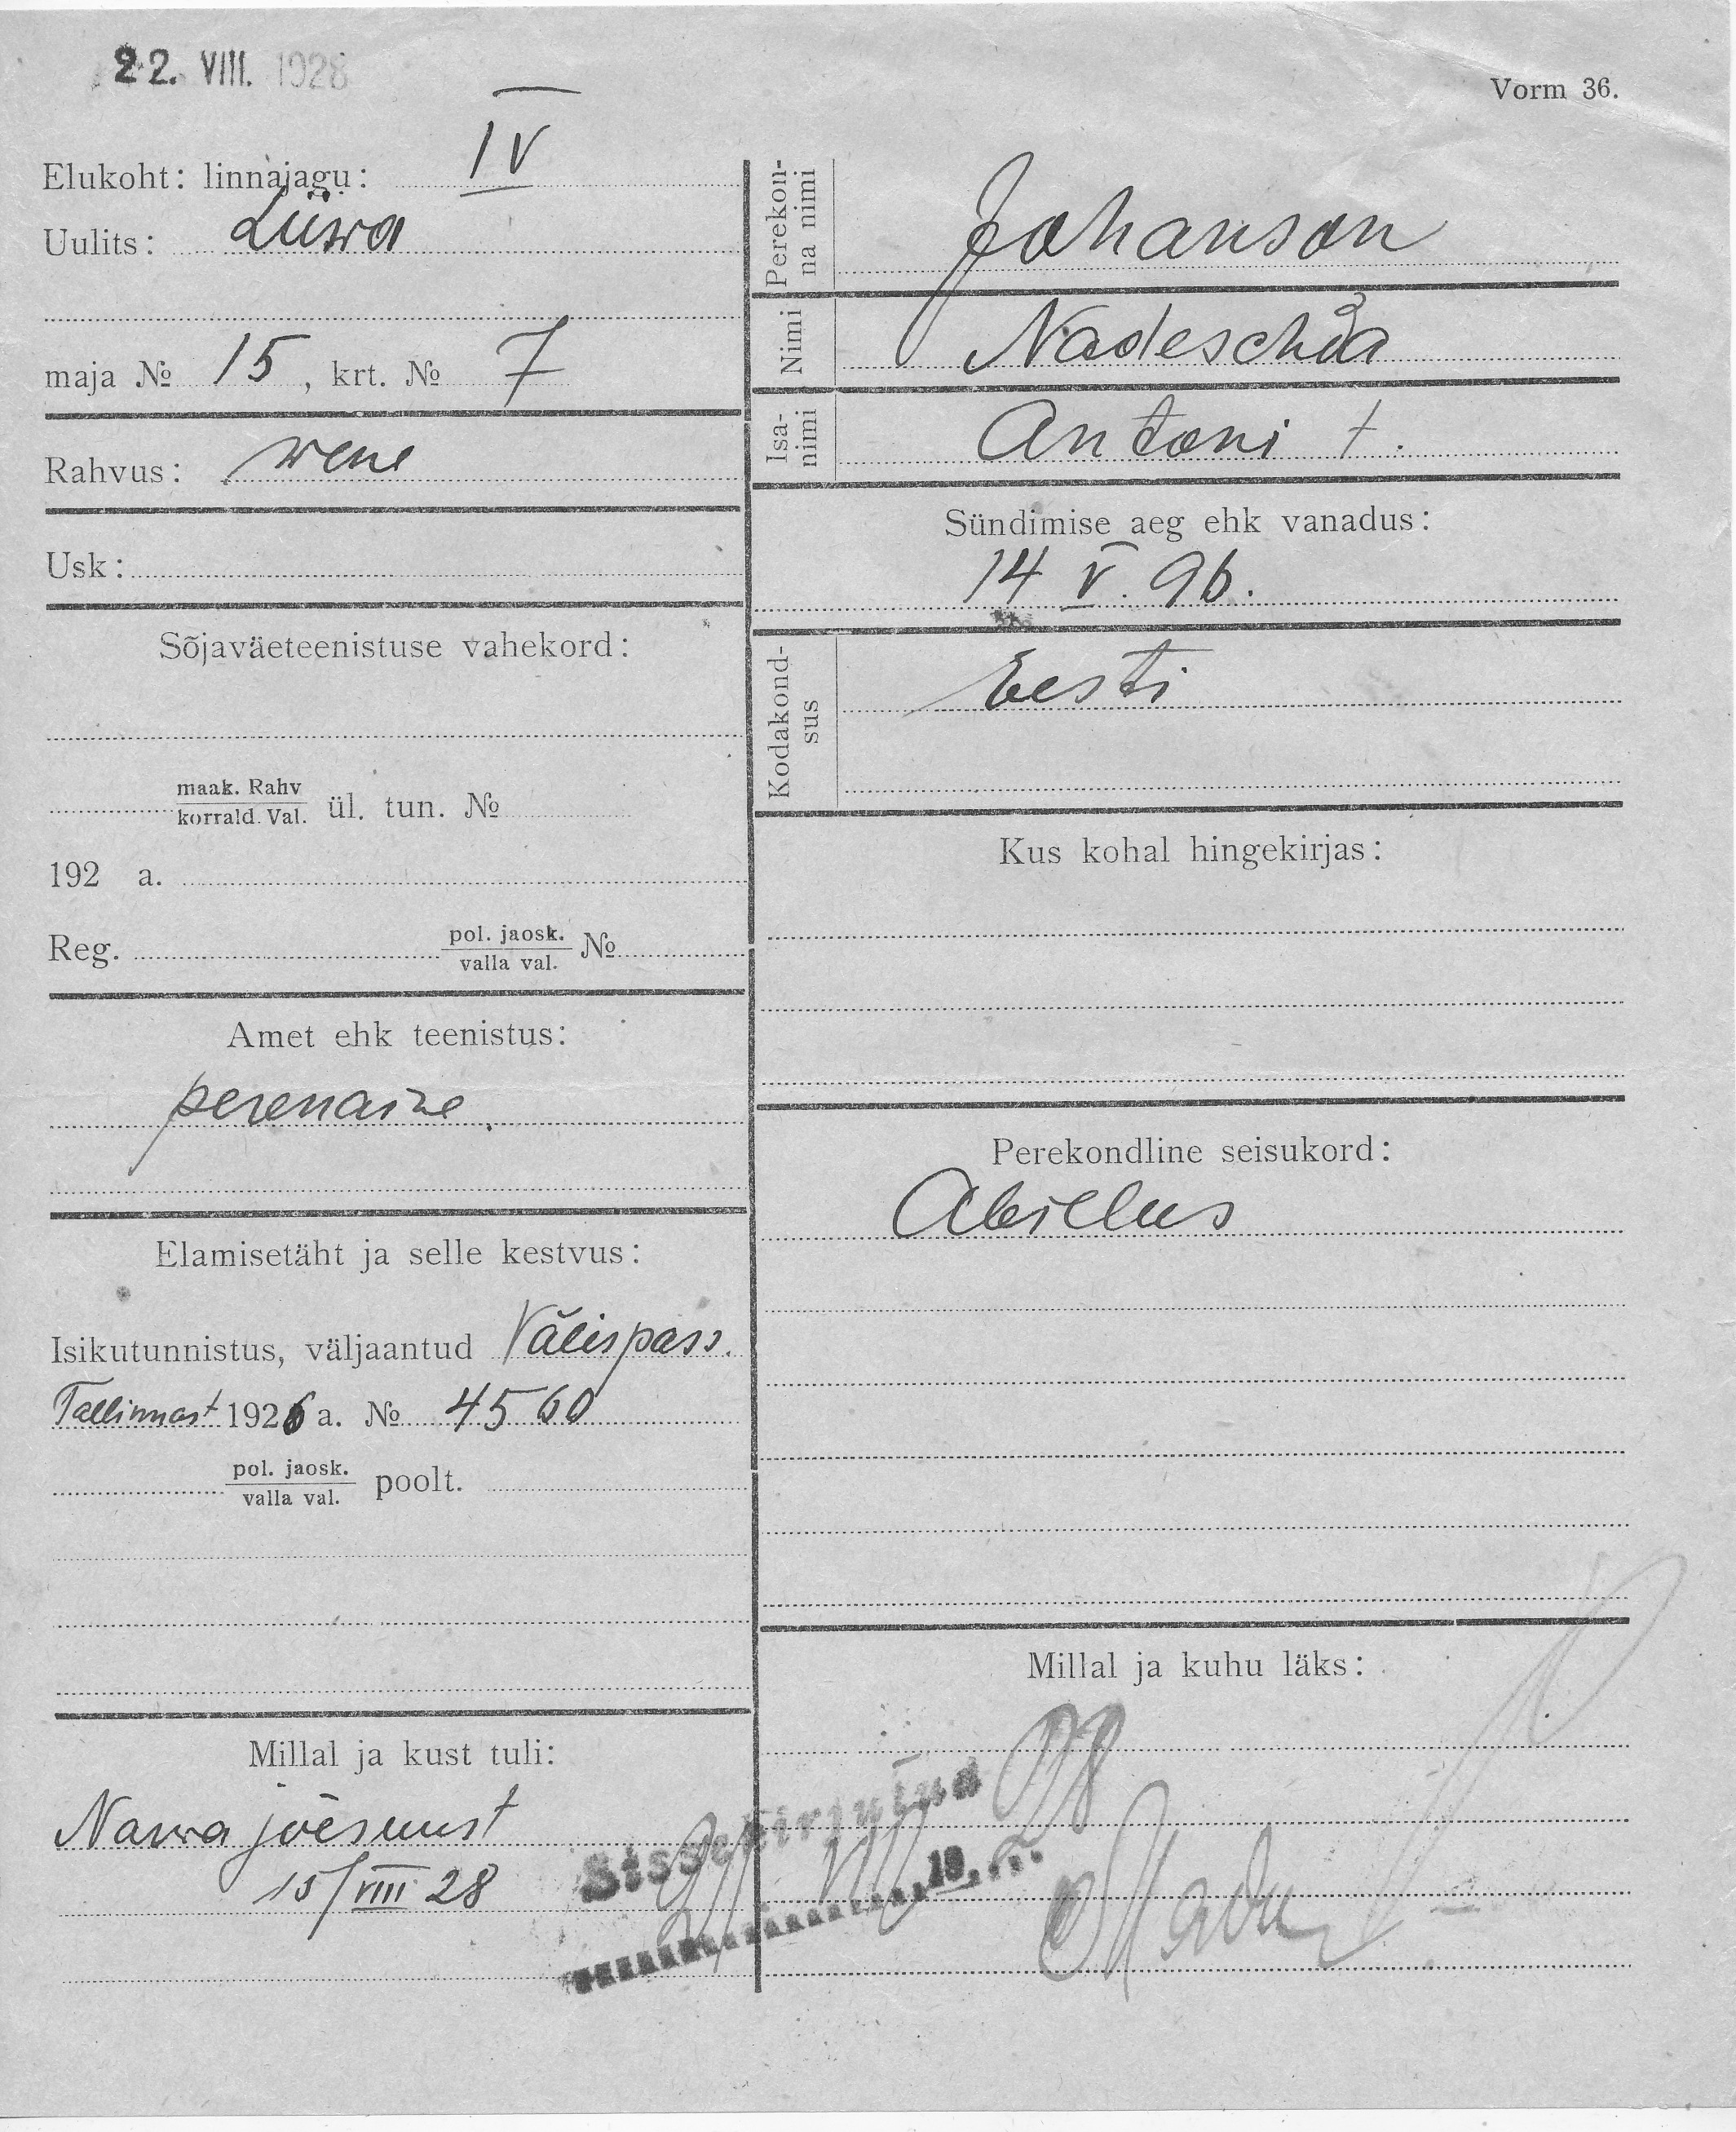 22. VIII. 1928
Vorm 36.
Elukoht: linnajagu: IV
Uulits: Liiwa
maja № 15, krt. № 7
Rahvus: wene
Usk:
Sõjaväeteenistuse vahekord:
maak. Rahv
korrald. Val. ül. tun. №
192 a.
Reg. pol. jaosk. №
valla val.
Amet ehk teenistus:
perenaine
Elamisetäht ja selle kestvus:
Isikutunnistus, väljaantud Välispass.
Tallinnast 1926 a. № 4560
pol. jaosk.
valla val. poolt.
Millal ja kust tuli:
Narva jõesuust
15/VIII 28
Perekon-
na nimi
Johanson
Nimi
Nadeschda
Isa-
nimi
Antoni t.
Sündimise aeg ehk vanadus:
14 V. 96.
Kodakond-
sus
Eesti
Kus kohal hingekirjas:
Perekondline seisukord:
Abiellus
Millal ja kuhu läks:
Sissekirjutud
21 VIII 19 28